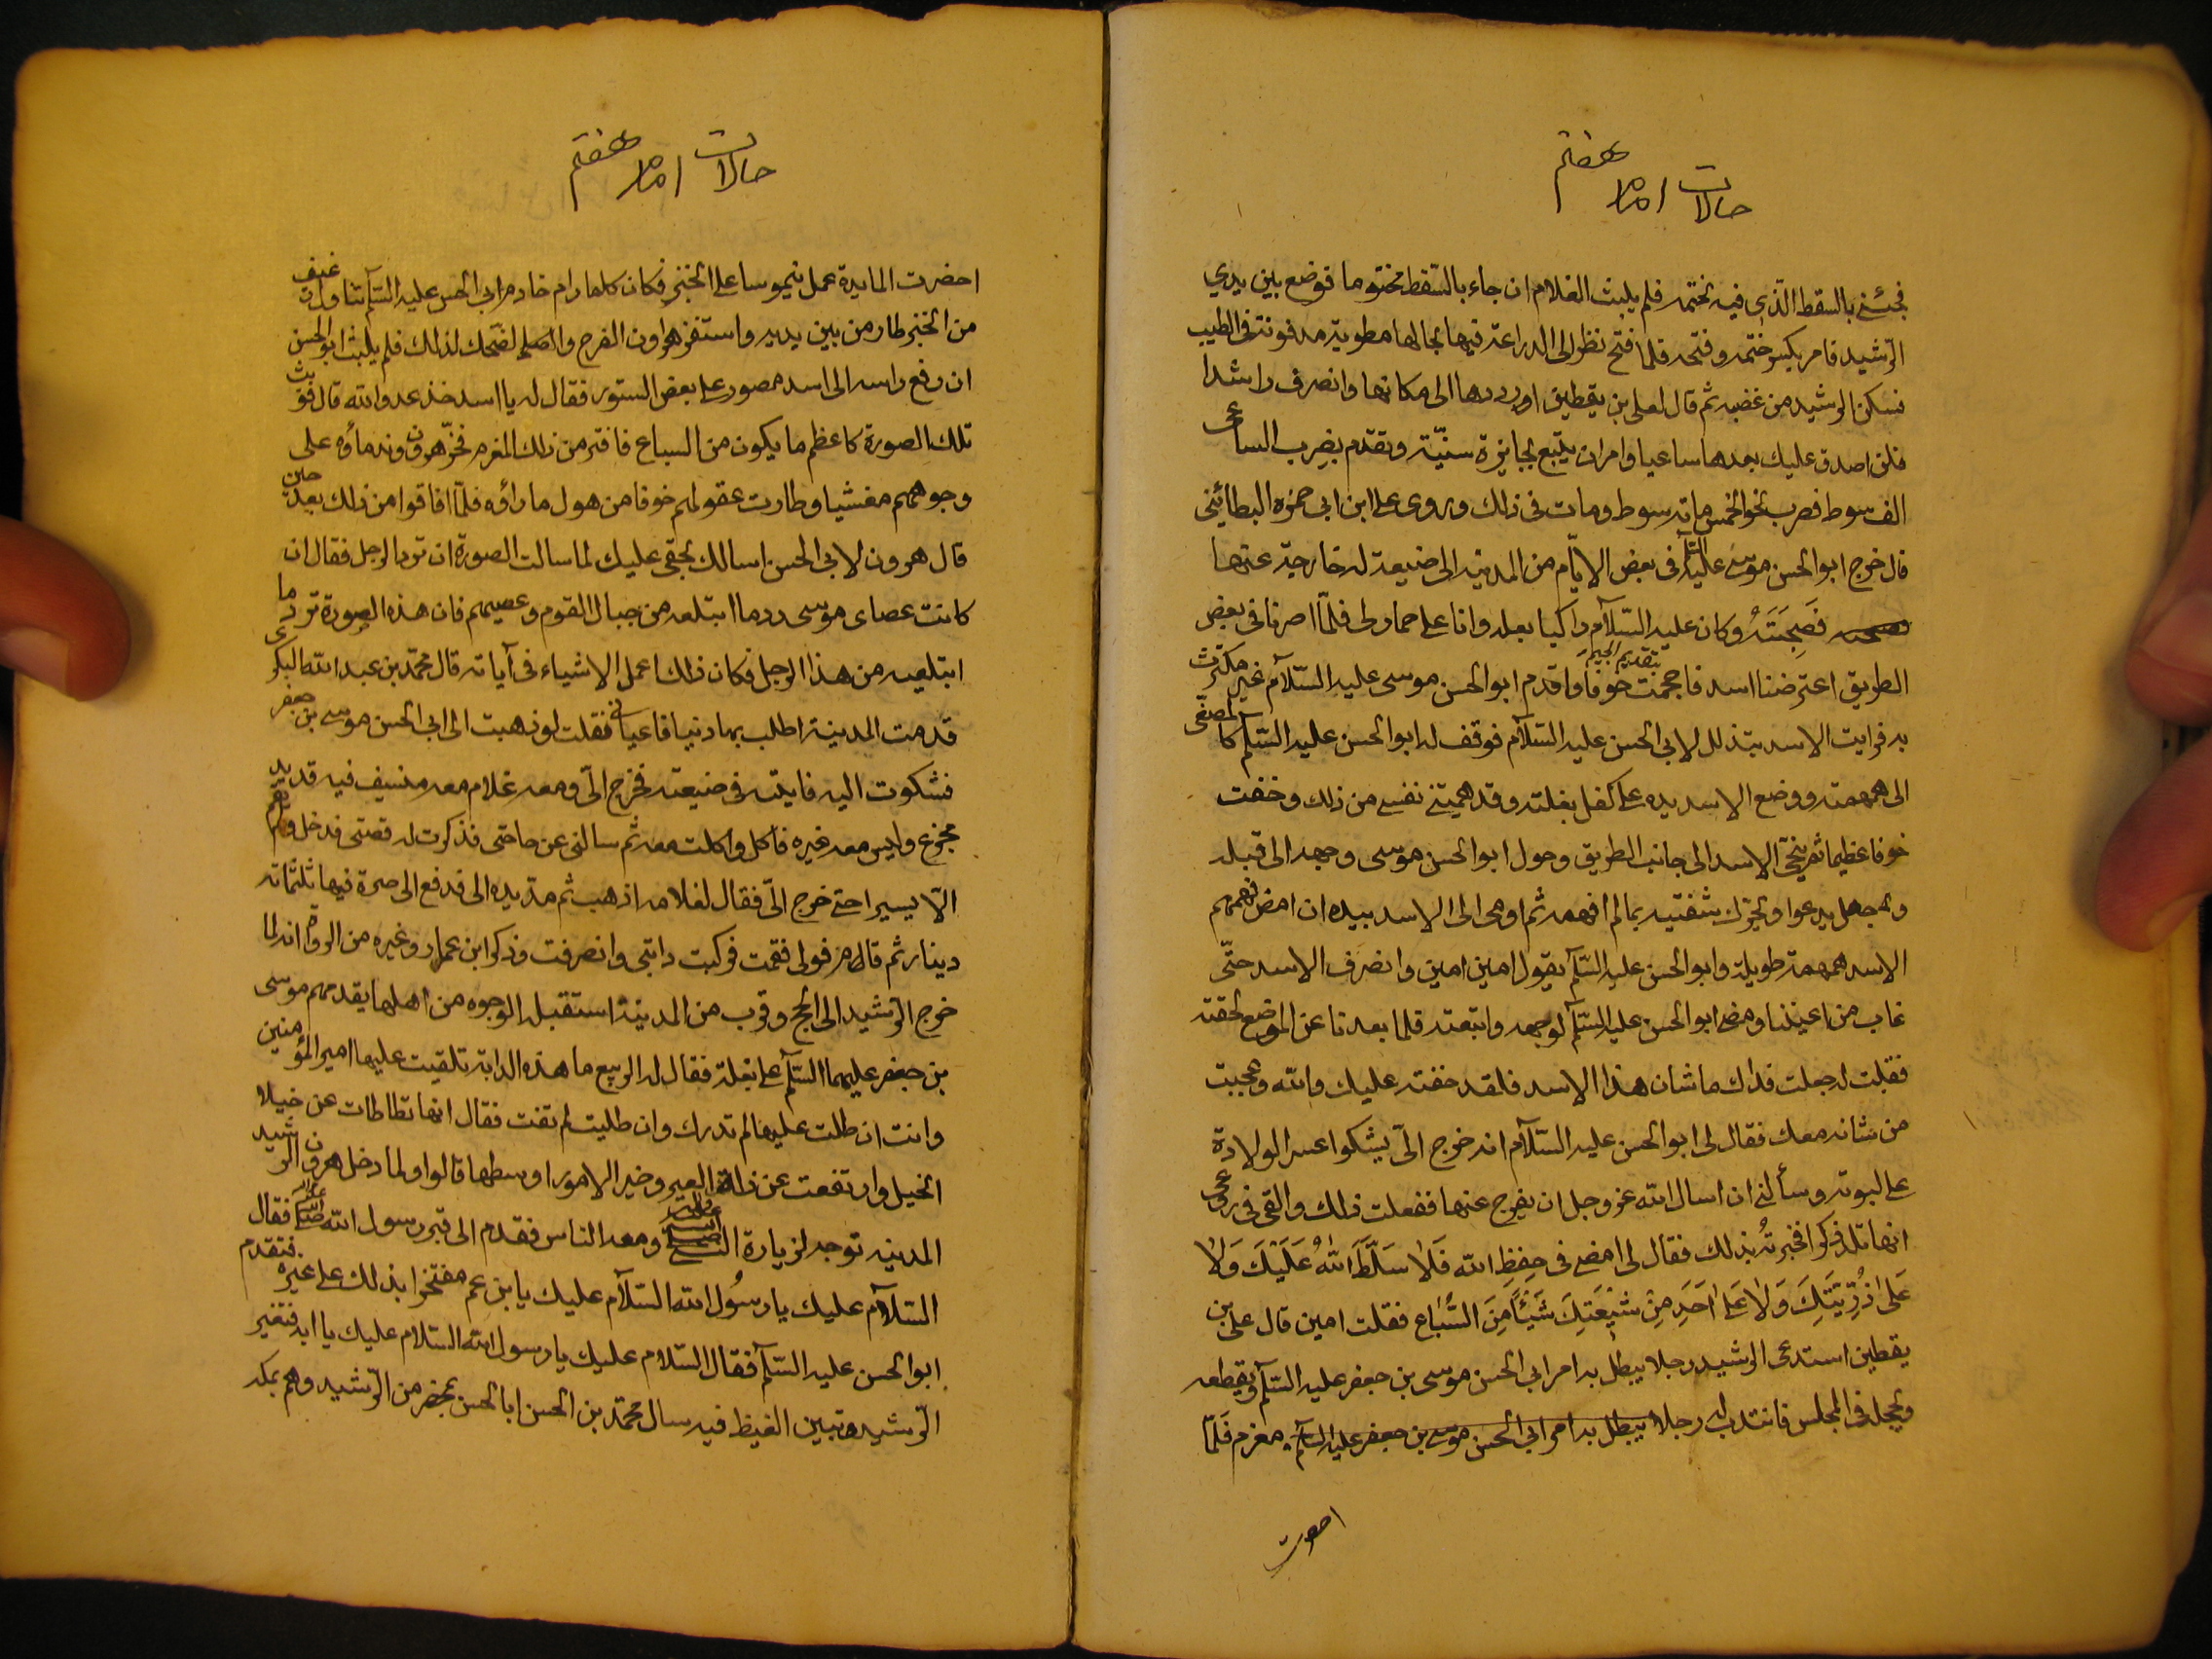 حالات امام هفتم
فجئنى بالسفط الذى فيه بختمه فلم يلبث الغلام ان جاء بالسّفط مختوما فوضع بين يدي
الرّشيد فامر بكسر ختمه و فتحه فلما فتح نظر الى الدراعة فيها بحالها مطوية مدفونة فى الطيب
فسكن الرشيد من غضبه ثم قال لعلى بن يقطين ارددها الى مكانها وانصرف راشدا
فلن اصدق عليك بعدها ساعيا وامر ان يتبع بجايزة سنيّة وتقدم بضرب الساعى
الف سوط فضرب نحو الخمس مائة سوط ومات فى ذلك وروى على ابن ابى حمزه البطائينى
قال خرج ابو الحسن موسى عليه السّلم فى بعض الايّام من المدينه الى ضيعة له خارجة عنها
فصحبته وكان عليه السّلام راكبا بغلة وانا على حمار لى فلمّا صرنا فى بعض
بتقديم الجيم
الطريق اعترضنا اسد فاجحمت خوفا واقدم ابو الحسن موسى عليه السّلام غير مكترث
به فرايت الاسد يتذلل لابى الحسن عليه السّلام فوقف له ابو الحسن عليه السّلم كالمصغى
الى همهمته ووضع الاسد يده على كفل بغلته وقد همتنى نفسى من ذلك وخفت
خوفا عظيما ثم تنحّى الاسد الى جانب الطريق وحول ابو الحسن موسى وجهه الى قبله
وجعل يدعوا ويحرّك شفتيه بما لم افهمه ثم اومى الى الاسد بيده ان امض فهمهم
الاسد همهمة طويلة وابو الحسن عليه السّلم يقول امين امين وانصرف الاسد حتّى
غاب من اعيننا ومضى ابو الحسن عليه السّلم لوجهه واتبعته فلما بعدنا عن الموضع لحقته
فقلت له جعلت فداك ما شان هذا الاسد فلقد خفته عليك والله وعجبت
من شانه معك فقال لى ابو الحسن عليه السّلام انه خرج الىّ يشكوا عسر الولادة
على لبوته وسألنى ان اسال الله عز وجل ان يفرج عنها ففعلت ذلك والقى فى روعى
انها تلد ذكرا فخبرتهُ بذلك فقال لى امض فى حِفظِ الله فَلا سَلَّطَ اللهُ عَلَيْكَ وَلا
عَلى ذُرِّيَّتِكَ وَلا عَلى اَحَدٍ مِنْ شيعَتِكَ شَيْئًا مِنَ السِّباع فقلت امين قال على بن
يقطين استدعى الرشيد رجلا يبطل به امر ابى الحسن موسى بن جعفر عليه السّلم ويقطعه
ويخجله فى المجلس فانتدب له رجلا يبطل به امر ابى الحسن موسى بن جعفر عليه السّلم مغرم فَلمّا
احضرت
حالات امام هفتم
احضرت المايدة عمل نيموسا على الخبز فكان كلما رام خادم ابى الحسن عليه السّلم تناول رغيف
من الخبز طار من بين يديه واستفز هرون الفرح والضحك لذلك فلم يلبث ابو الحسن
ان رفع راسه الى اسد مصور على بعض الستور فقال له يا اسد خذ عدو الله قال فوثبت
تلك الصورة كاعظم ما يكون من السباع فافترس ذلك المغرم فخرّ هرون وندماؤه على
وجوههم مغشيا وطارت عقولهم خوفا من هول ما راؤه فلمّا افاقوا من ذلك بعد حين
قال هرون لابى الحسن اسالك بحقى عليك لما سالت الصورة ان ترد الرجل فقال ان
كانت عصاى موسى ردت ما ابتلعه من جبال القوم وعصيهم فان هذه الصورة ترد ما
ابتلعيه من هذا الرجل فكان ذلك اعمل الاشياء فى آياته قال محمّد بن عبد الله البكرى
قدمت المدينة اطلب بها دينا فاعيانى فقلت لو ذهبت الى ابى الحسن موسى بن جعفر
فشكوت اليه فايته فى ضيعته فخرج الىّ ومعه غلام معه منسيف فيه قديد
مجزع وليس معه غيره فاكل واكلت معه ثم سالنى عن حاجتى فذكرت له قصتى فدخل ولم يقم
الّا يسيرا حتى خرج الىّ فقال لغلامه اذهب ثم مدّ يده الى فدفع الى صرة فيها ثلثمائة
دينار ثم قام فولى فقمت فركبت دابتى وانصرفت وذكر ابن عمار وغيره من الرواة انه لما
خرج الرّشيد الى الحج وقرب من المدينة استقبله الوجوه من اهلها يقدمهم موسى
بن جعفر عليهما السّلم على بغلة فقال له الربيع ما هذه الدابة تلقيت عليها امير المؤمنين
وانت ان طلبت عليها لم تدرك وان طلبت لم تفت فقال انها تطاطات عن خيلا
الخيل وارتفعت عن ذلة العير وخير الامور اوسطها قالوا ولما دخل هرون الرشيد
المدينه توجه لزيارة النبى ومعه الناس فقدم الى قبر رسول الله فقال
السّلام عليك يا رسُول الله السّلام عليك يابن عم مفتخرا بذلك على غيره فتقدم
ابو الحسن عليه السّلم فقال السّلام عليك يا رسول الله السّلام عليك يا ابه فتغير
الرّشيد وتبين الغيظ فيه سال محمّد بن الحسن ابا الحسن بمحضر من الرّشيد وهم بمكه